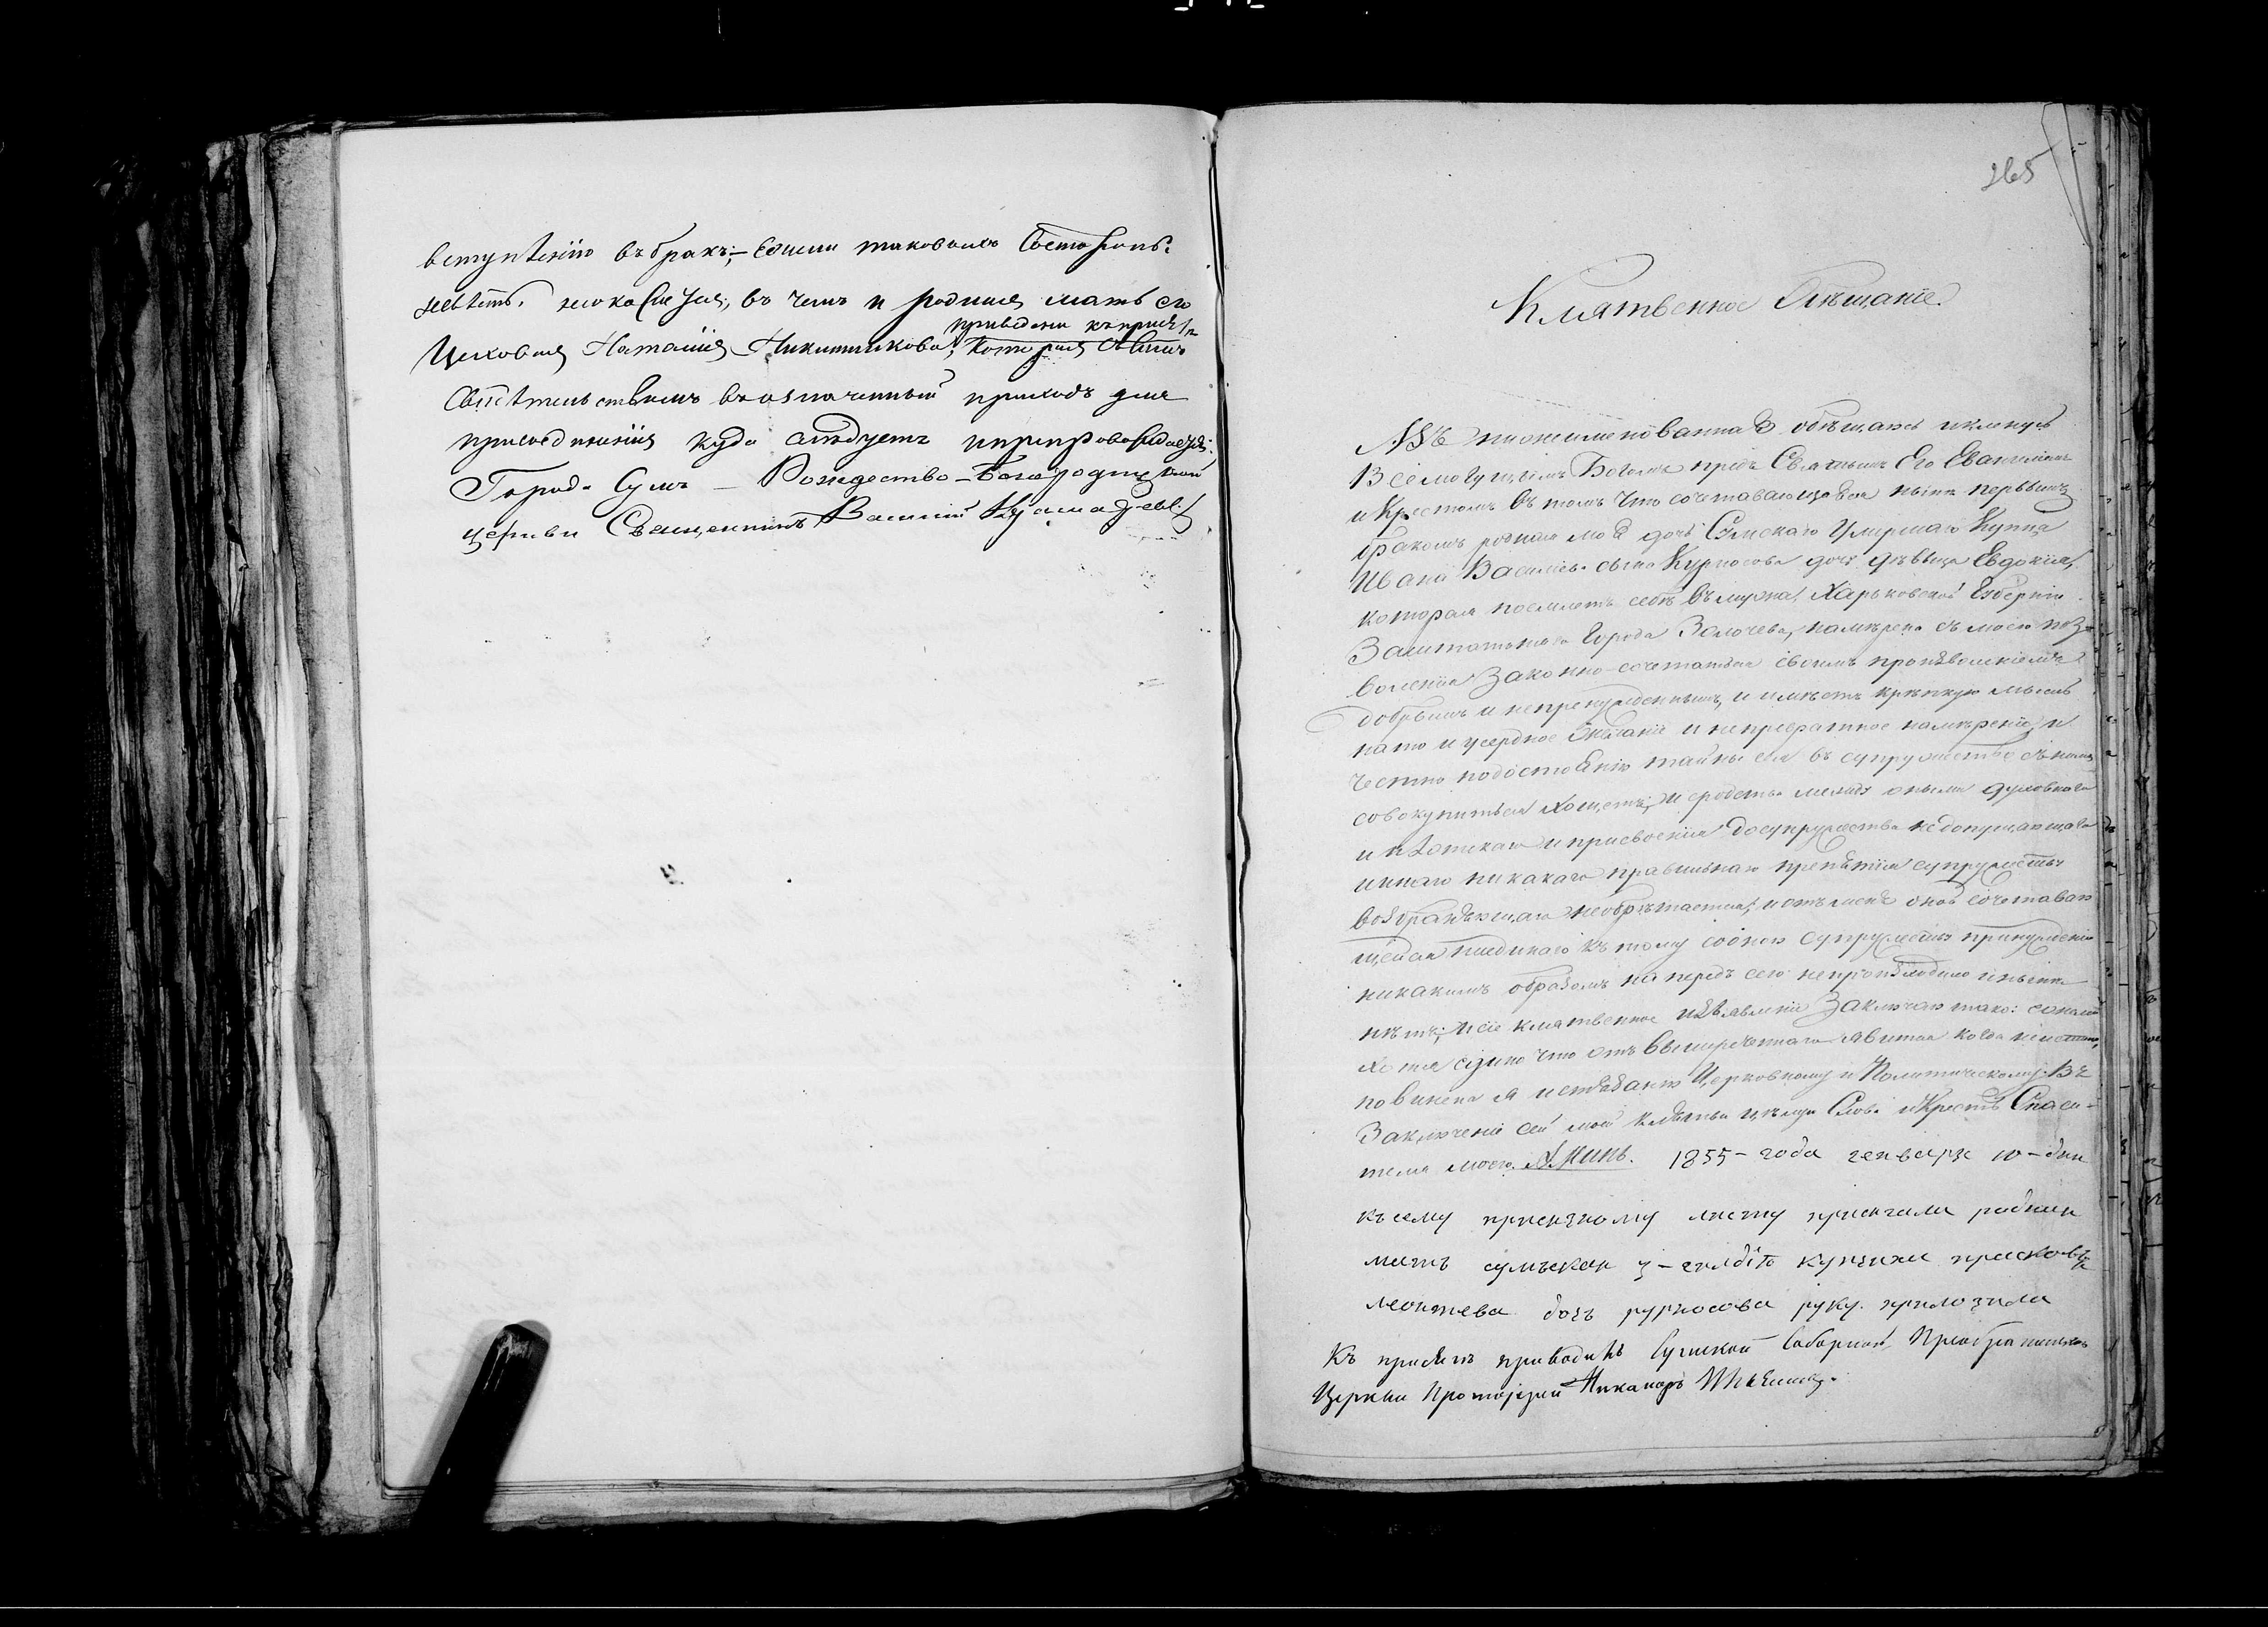 вступленію въ бракъ; – если таковымъ
нетъ. въ чемъ и родная мать его
Цеховая Наталія Никитникова, приведена къ присягѣ
свидѣтельствомъ въ означенный приходъ для
присоединенія куда слѣдуетъ и препровождается.
Города Сумъ – Рождество-Богородичной
церкви Священникъ Василій
265
Клятвенное Обѣщаніе.
Азъ нижеименованная обѣщаюсь и клянусь
Всемогущимъ Богомъ предъ Святымъ Его Евангеліемъ
и Крестомъ въ томъ что сочетавающаяся нынѣ первымъ
бракомъ родная моя дочь Сумскаго Умершаго Купца
Ивана Васильева сына Курносова дочь дѣвица Евдокія,
которая поемлетъ себѣ въ мужа, Харьковской Губерніи
Заштатнаго Города Золочева, намѣрена съ моего поз-
воленія Законно сочетаться своимъ произволеніемъ
добрымъ и непренужденнымъ, и имѣетъ крѣпкую мысль
на то и усердное Желаніе и непревратное намѣреніе, и
честно подостоянію тайны сея въ супружество съ нимъ
совокупиться хощетъ; и сродства между оными духовнаго
и плотскаго и присвоенія до супружества недопущающаго
иннаго никакаго правильнаго препятія супружеству
возбраняющаго необрѣтается, и отъ мене оной сочетаваю
щейся ниединаго къ тому союзу супружества принужденія
никакимъ образомъ напередъ сего непроизходило и нынѣ
нѣтъ; и сіе клятвенное изъявленіе Заключаю тако:
хотя едино что отъ вышереченнаго явится когда неистинно,
повинна я истязанію Церковному и Политическому. Въ
Заключеніе сей моей клятвы цѣлую Слова и Крестъ Спаси-
теля моего. Аминь. 1855 – года генваря 10 – дня
къ сему присяжному листу присягала родная
мать сумъская 3 – гилдіи купчиха прасковья
леонтева дочъ курносова руку приложила
Къ присягѣ приводилъ Сумской Соборной Преображенской
Церкви Протоіерей Никаноръ